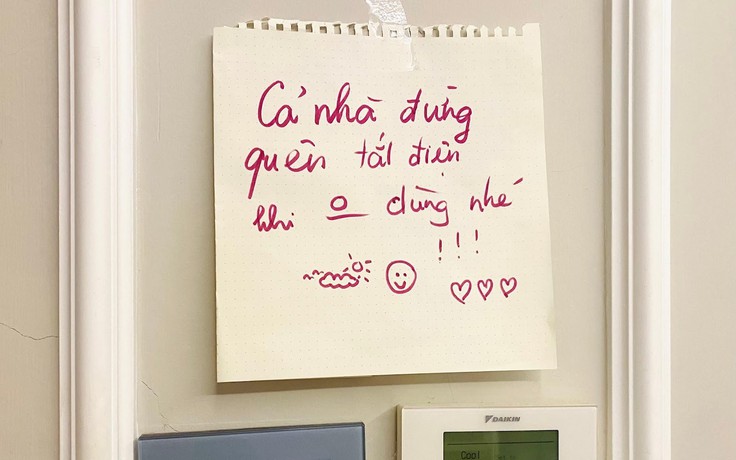 Cả nhà đừng
quên tắt điện
khi o dùng nhé
!!!
DAIKIN
Cool